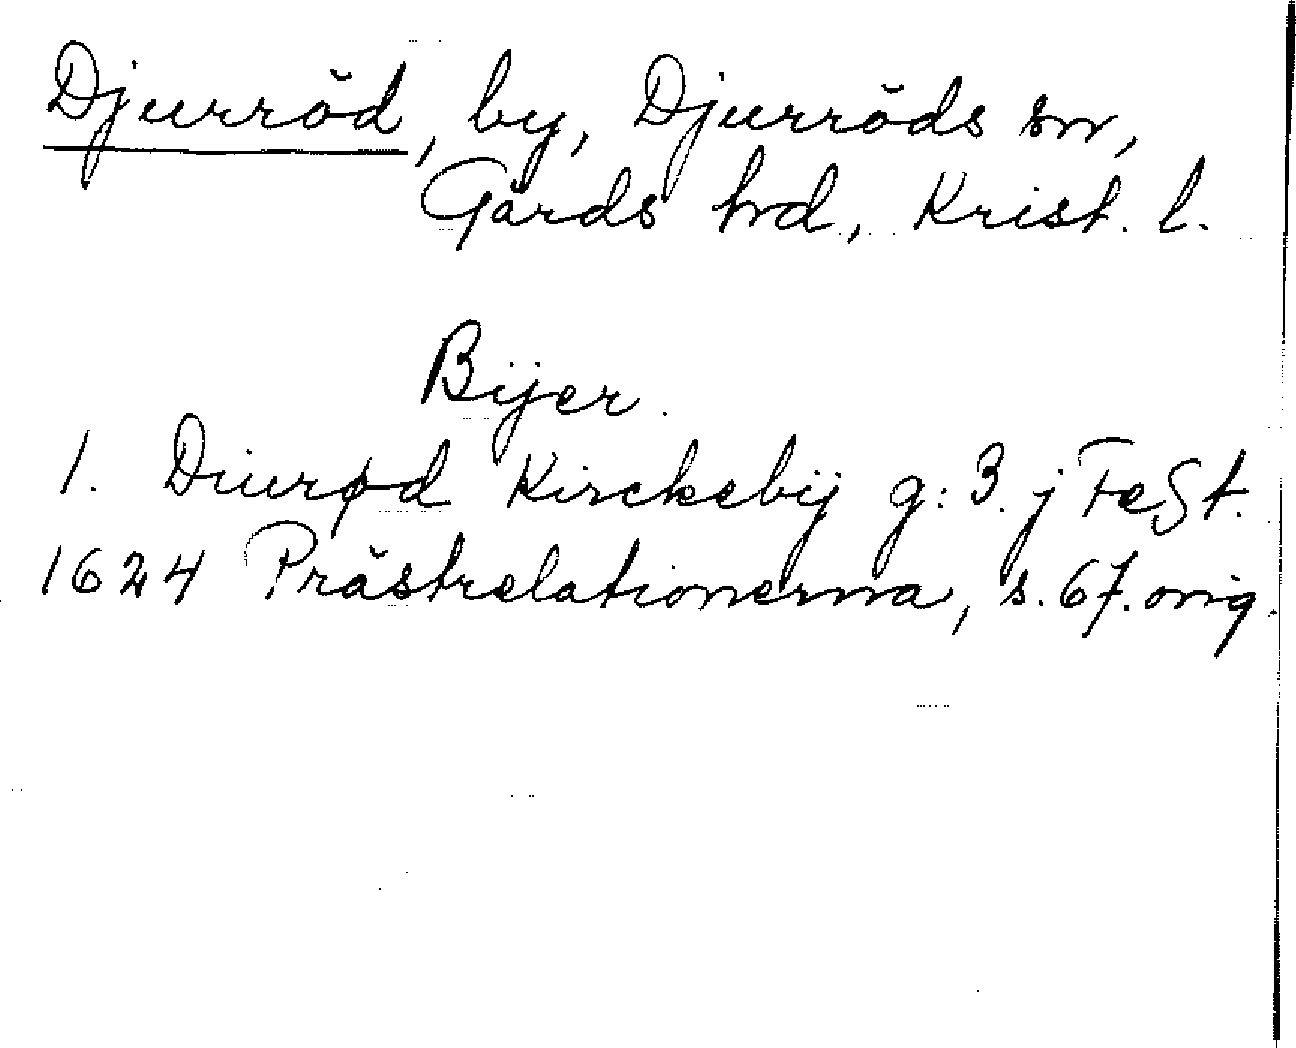 Djurröd, by, Djurröds sn,
Gärds hrd, Krist. l.
Bÿer.
1. Diurød Kirckebÿ g: 3. j FeSt.
1624 Prästrelationerna, s. 67. orig.